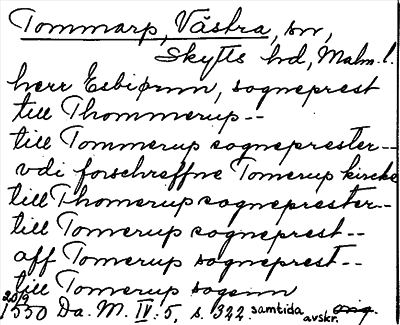 Tommarp, Västra, sn,
Skytts hd, Malm. l.
herr Esbiørnn, sogneprest
till Thommerup--
till Tommerup sogneprester--
vdi forschreffne Tomerup kircke
till Thomerup sogneprester--
till Tomerup sogneprest--
aff Tomerup sogneprest--
till Tomerup sogenn
20/9 1550 Da. M. IV: 5, s. 322. samtida avskr.